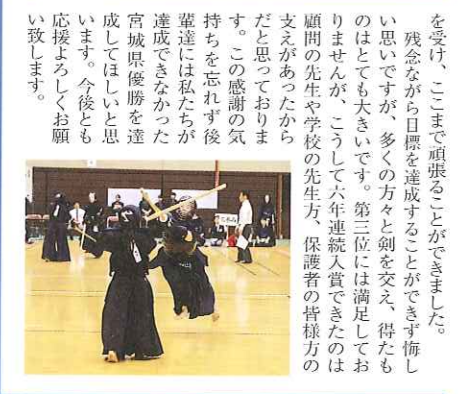 を受け、ここまで頑張ることができました。
残念ながら目標を達成することができず悔し
い思いですが、多くの方々と剣を交え、得たも
のはとても大きいです。第三位には満足してお
りませんが、こうして六年連続入賞できたのは
顧問の先生や学校の先生方、保護者の皆様方の
支えがあったから
だと思っておりま
す。この感謝の気
持ちを忘れず後
輩達には私たちが
達成できなかった
宮城県優勝を達
成してほしいと思
います。今後とも
応援よろしくお願
い致します。